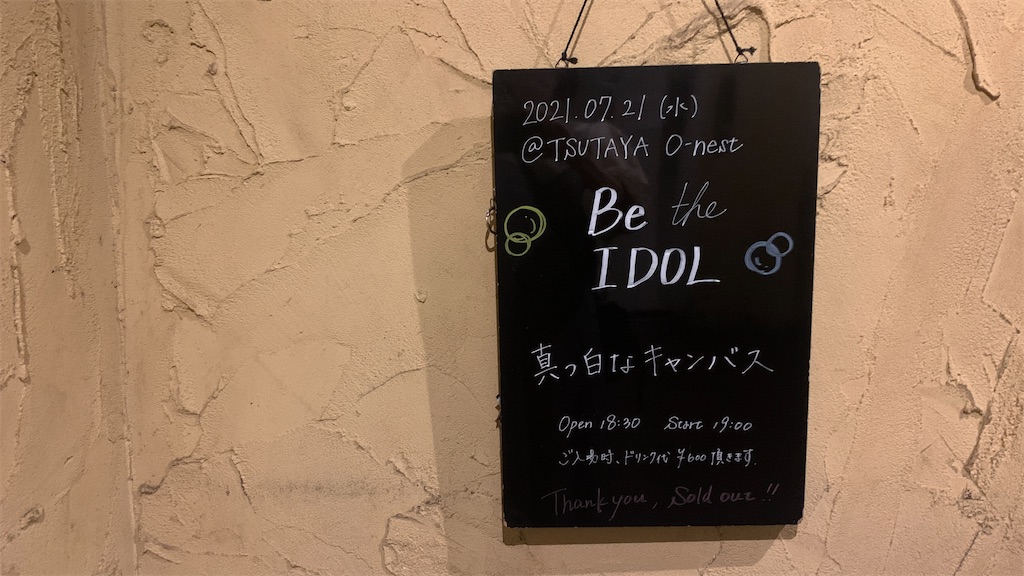 2021.07.21(水)
@TSUTAYA O-nest
Be the
IDOL
真っ白なキャンバス
Open 18:30 Start 19:00
ご入場時、ドリンク代 ¥600 頂きます.
Thank you, Sold out!!